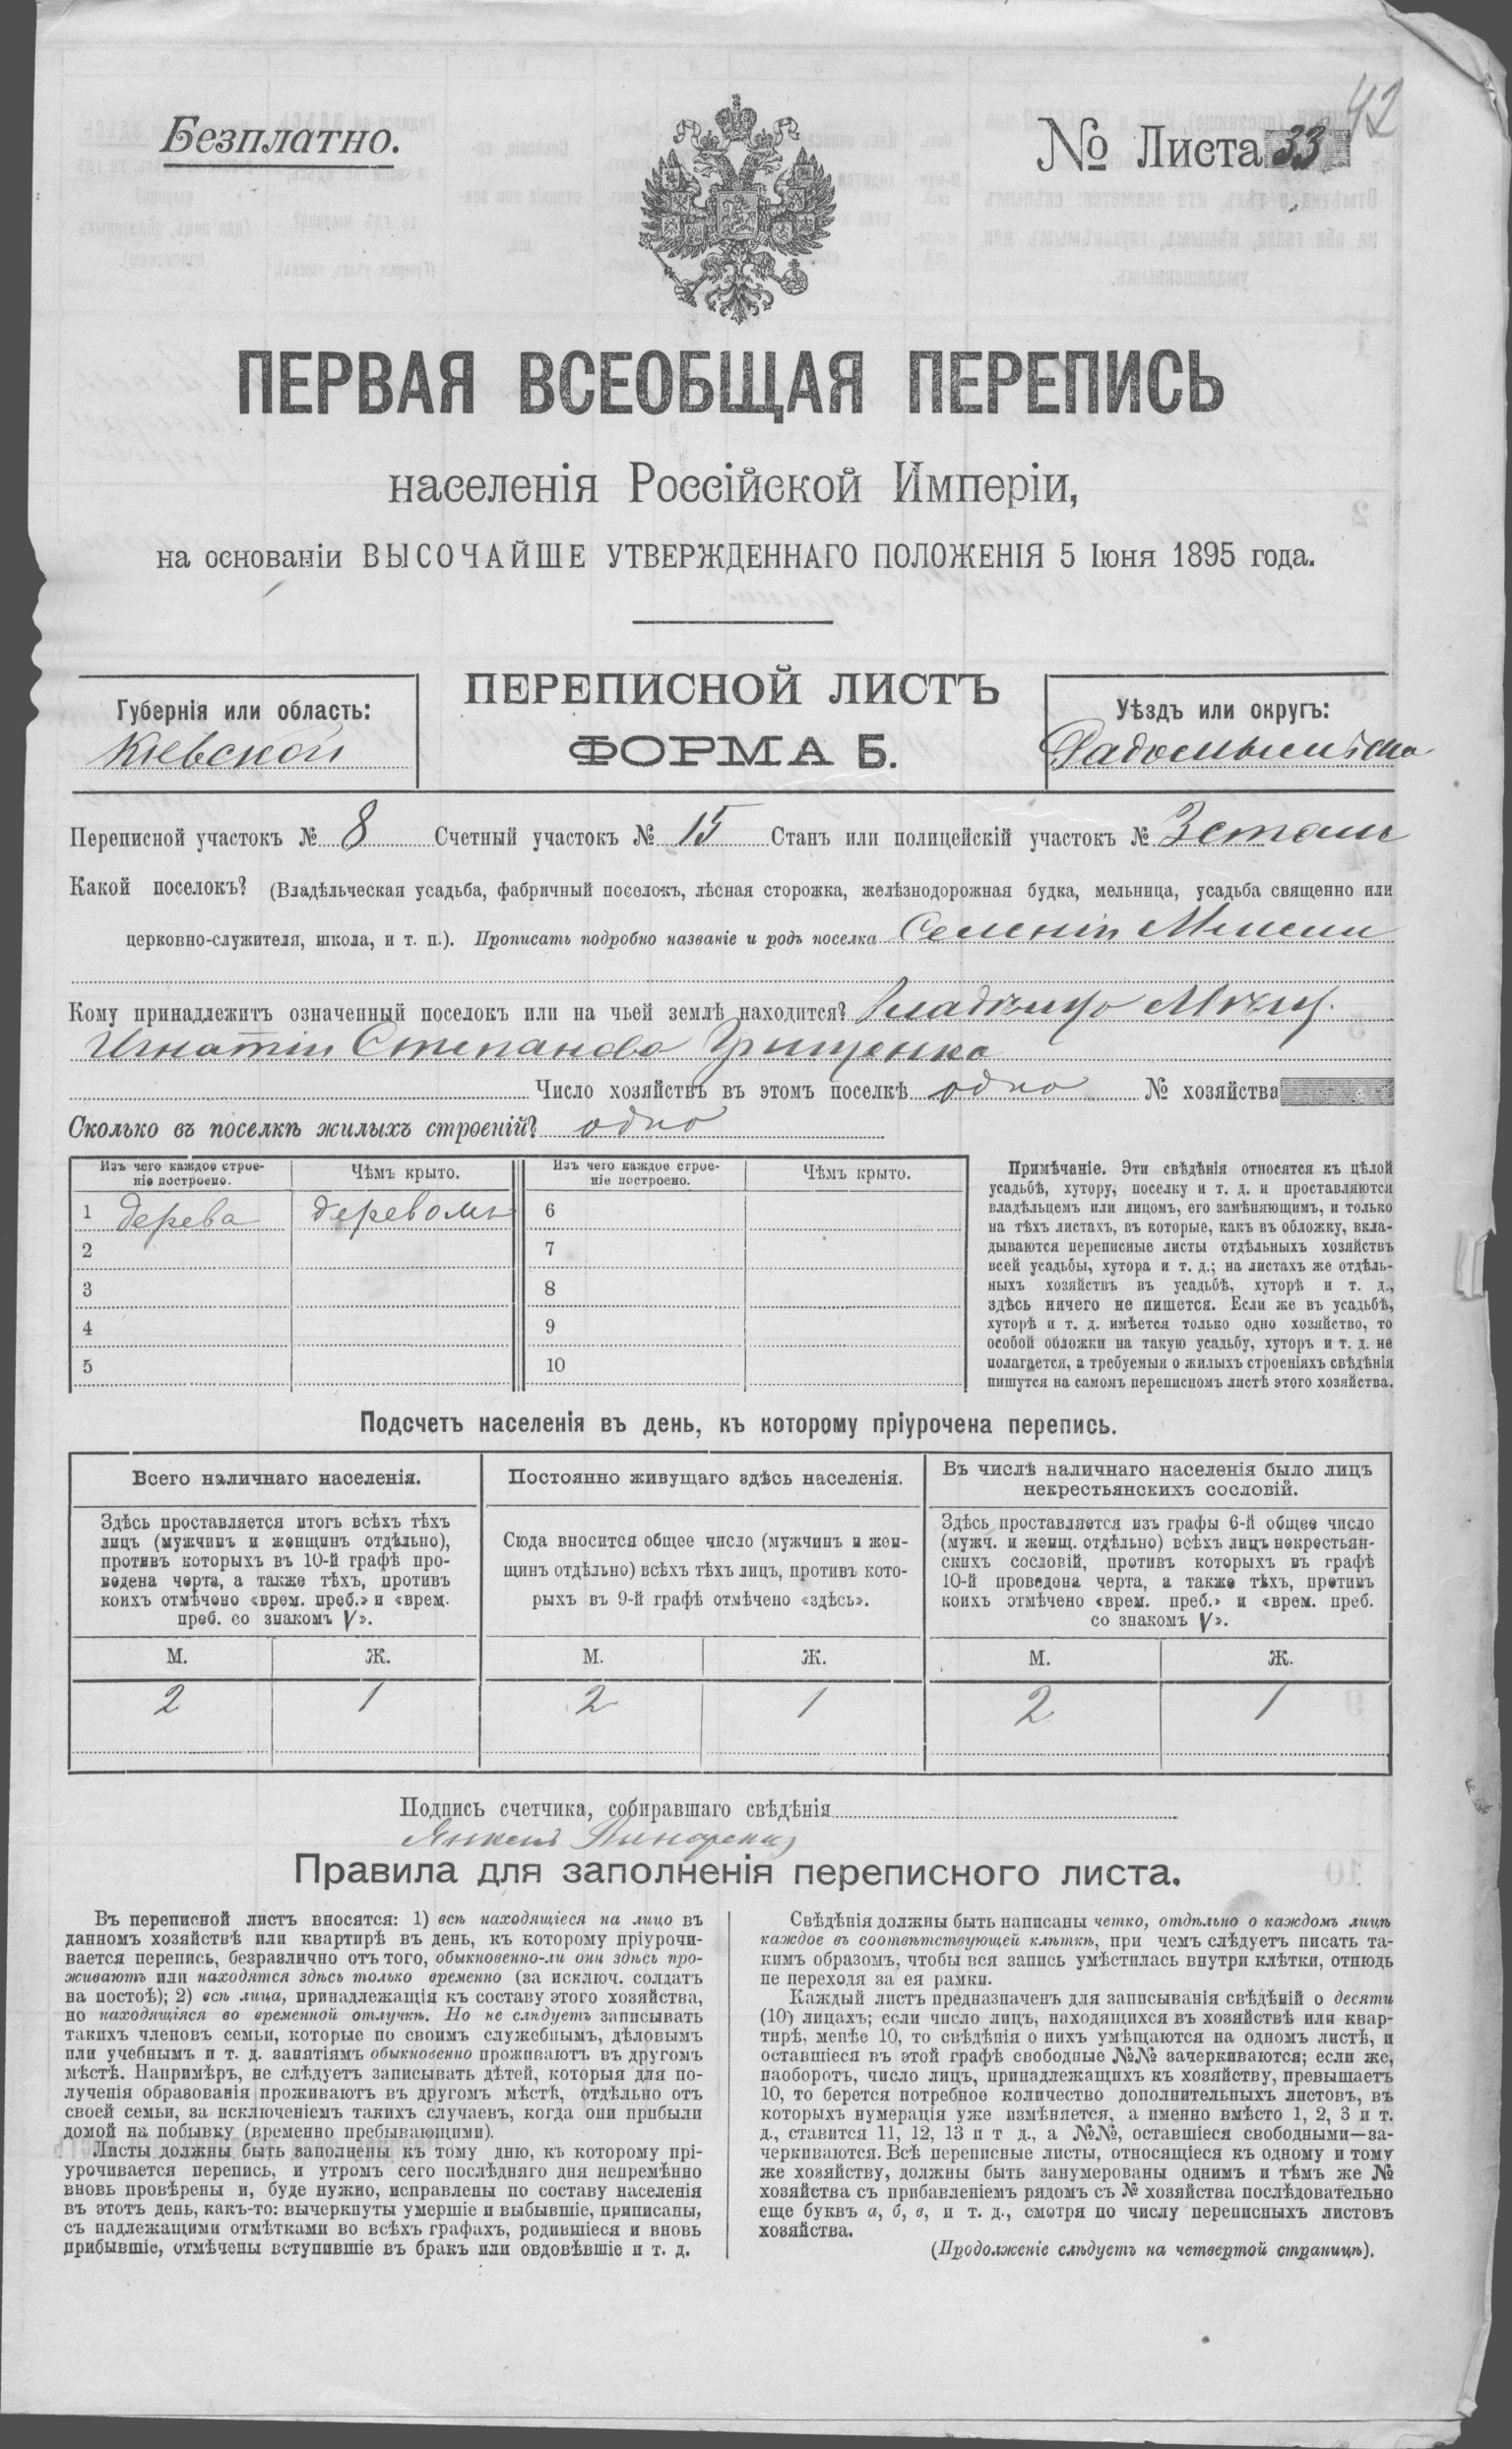 42
Безплатно.
№ Листа 33
ПЕРВАЯ ВСЕОБЩАЯ ПЕРЕПИСЬ
населенія Россійской Имперіи,
на основаніи ВЫСОЧАЙШЕ УТВЕРЖДЕННАГО ПОЛОЖЕНІЯ 5 Іюня 1895 года.
ПЕРЕПИСНОЙ ЛИСТЪ
ФОРМА Б.
Губернія или область:
Кіевской
Уѣздъ или округъ:
Переписной участокъ № 8 Счетный участокъ № 15 Станъ или полицейскій участокъ № 3 станъ
Какой поселокъ? (Владѣльческая усадьба, фабричный поселокъ, лѣсная сторожка, желѣзнодорожная будка, мельница, усадьба священно или
церковно-служителя, школа, и т. п.). Прописать подробно названіе и родъ поселка
Кому принадлежитъ означенный поселокъ или на чьей землѣ находится?
Степанова Грищенка
Число хозяйствъ въ этомъ поселкѣ одно № хозяйства
Сколько въ поселкѣ жилыхъ строеній? одно
Изъ чего каждое строе-
ніе построено.
Чѣмъ крыто.
Изъ чего каждое строе-
ніе построено.
Чѣмъ крыто.
1 дерева деревомъ 6
2 7
3 8
4 9
5 10
Примѣчаніе. Эти свѣдѣнія относятся къ цѣлой
усадьбѣ, хутору, поселку и т. д. и проставляются
владѣльцемъ или лицомъ, его замѣняющимъ, и только
на тѣхъ листахъ, въ которые, какъ въ обложку, вкла-
дываются переписные листы отдѣльныхъ хозяйствъ
всей усадьбы, хутора и т. д.; на листахъ же отдѣль-
ныхъ хозяйствъ въ усадьбѣ, хуторѣ и т. д.,
здѣсь ничего не пишется. Если же въ усадьбѣ,
хуторѣ и т. д. имѣется только одно хозяйство, то
особой обложки на такую усадьбу, хуторъ и т. д. не
полагается, а требуемыя о жилыхъ строеніяхъ свѣдѣнія
пишутся на самомъ переписномъ листѣ этого хозяйства.
Подсчетъ населенія въ день, къ которому пріурочена перепись.
Всего наличнаго населенія.
Здѣсь проставляется итогъ всѣхъ тѣхъ
лицъ (мужчинъ и женщинъ отдѣльно),
противъ которыхъ въ 10-й графѣ про-
ведена черта, а также тѣхъ, противъ
коихъ отмѣчено «врем. преб.» и «врем.
преб. со знакомъ V».
Постоянно живущаго здѣсь населенія.
Сюда вносится общее число (мужчинъ и жен-
щинъ отдѣльно) всѣхъ тѣхъ лицъ, противъ кото-
рыхъ въ 9-й графѣ отмѣчено «здѣсь».
Въ числѣ наличнаго населенія было лицъ
некрестьянскихъ сословій.
Здѣсь проставляется изъ графы 6-й общее число
(мужч. и женщ. отдѣльно) всѣхъ лицъ некрестьян-
скихъ сословій, противъ которыхъ въ графѣ
10-й проведена черта, а также тѣхъ, противъ
коихъ отмѣчено «врем. преб.» и «врем. преб.
со знакомъ V».
М. Ж. М. Ж. М. Ж.
2 1 2 1 2 1
Подпись счетчика, собиравшаго свѣдѣнія
Правила для заполненія переписного листа.
Въ переписной листъ вносятся: 1) всѣ находящіеся на лицо въ
данномъ хозяйствѣ или квартирѣ въ день, къ которому пріурочи-
вается перепись, безразлично отъ того, обыкновенно-ли они здѣсь про-
живаютъ или находятся здѣсь только временно (за исключ. солдатъ
на постоѣ); 2) всѣ лица, принадлежащія къ составу этого хозяйства,
но находящіяся во временной отлучкѣ. Но не слѣдуетъ записывать
такихъ членовъ семьи, которые по своимъ служебнымъ, дѣловымъ
или учебнымъ и т. д. занятіямъ обыкновенно проживаютъ въ другомъ
мѣстѣ. Напримѣръ, не слѣдуетъ записывать дѣтей, которыя для по-
лученія образованія проживаютъ въ другомъ мѣстѣ, отдѣльно отъ
своей семьи, за исключеніемъ такихъ случаевъ, когда они прибыли
домой на побывку (временно пребывающими).
Листы должны быть заполнены къ тому дню, къ которому прі-
урочивается перепись, и утромъ сего послѣдняго дня непремѣнно
вновь провѣрены и, буде нужно, исправлены по составу населенія
въ этотъ день, какъ-то: вычеркнуты умершіе и выбывшіе, приписаны,
съ надлежащими отмѣтками во всѣхъ графахъ, родившіеся и вновь
прибывшіе, отмѣчены вступившіе въ бракъ или овдовѣвшіе и т. д.
Свѣдѣнія должны быть написаны четко, отдѣльно о каждомъ лицѣ
каждое въ соотвѣтствующей клѣткѣ, при чемъ слѣдуетъ писать та-
кимъ образомъ, чтобы вся запись умѣстилась внутри клѣтки, отнюдь
не переходя за ея рамки.
Каждый листъ предназначенъ для записыванія свѣдѣній о десяти
(10) лицахъ; если число лицъ, находящихся въ хозяйствѣ или квар-
тирѣ, менѣе 10, то свѣдѣнія о нихъ умѣщаются на одномъ листѣ, и
оставшіеся въ этой графѣ свободные №№ зачеркиваются; если же,
наоборотъ, число лицъ, принадлежащихъ къ хозяйству, превышаетъ
10, то берется потребное количество дополнительныхъ листовъ, въ
которыхъ нумерація уже измѣняется, а именно вмѣсто 1, 2, 3 и т.
д., ставится 11, 12, 13 и т д., а №№, оставшіеся свободными—за-
черкиваются. Всѣ переписные листы, относящіеся къ одному и тому
же хозяйству, должны быть занумерованы однимъ и тѣмъ же №
хозяйства съ прибавленіемъ рядомъ съ № хозяйства послѣдовательно
еще буквъ а, б, в, и т. д., смотря по числу переписныхъ листовъ
хозяйства.
(Продолженіе слѣдуетъ на четвертой страницѣ).